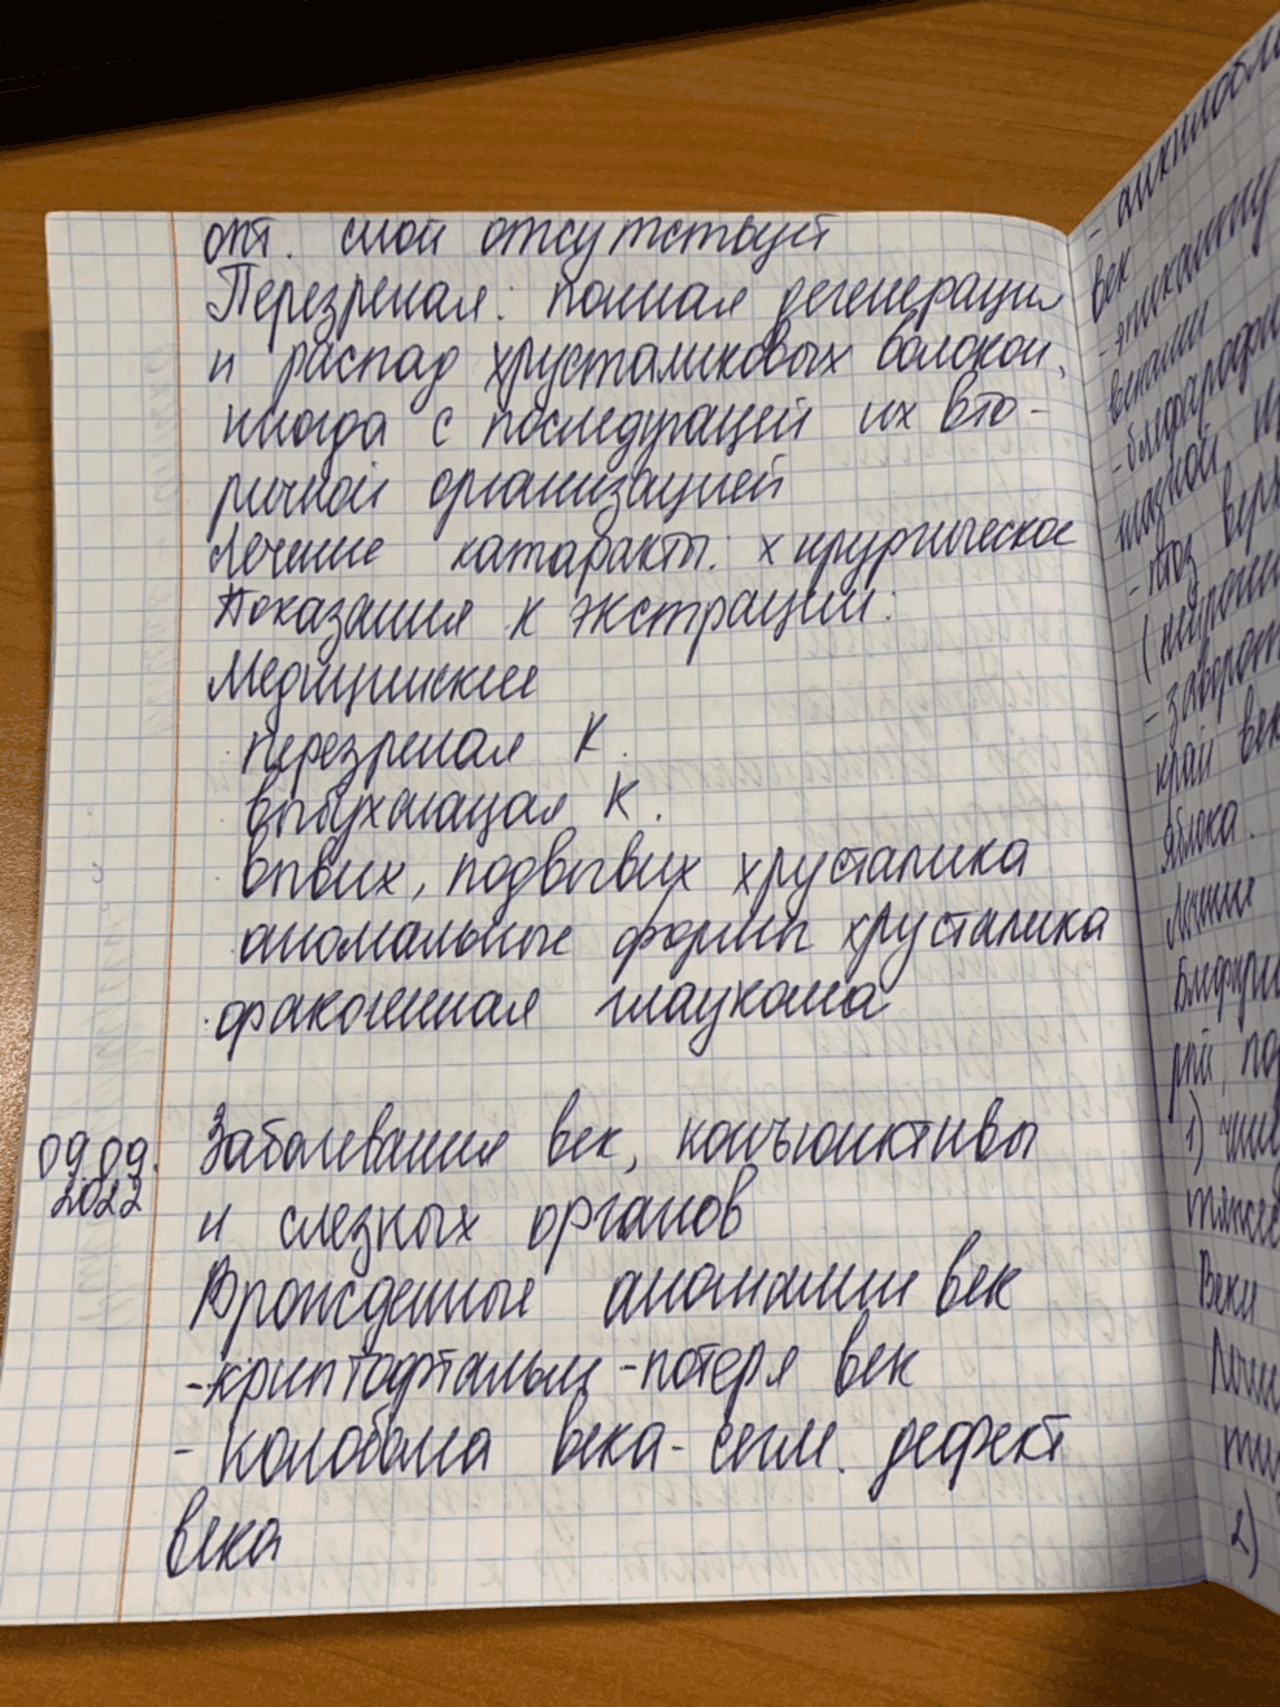 опт. слой отсутствует
Перезрелая: полная дегенерация
и распад хрусталиковых волокон,
иногда с последующей их вто-
ричной организацией
Лечение катаракты: хирургическое
Показания к экстракции:
Медицинские
· перезрелая К.
· выбухающая К.
· вывих, подвывих хрусталика
· аномальные формы хрусталика
· факогенная глаукома
09.09.
2022
Заболевания век, конъюнктивы
и слезных органов
Врожденные аномалии век
- криптофтальм - потеря век
- колобома века - сегм. дефект
века
век
- птоз
- заворот
край век
яблока.
Лечение
1)
Веки
2)